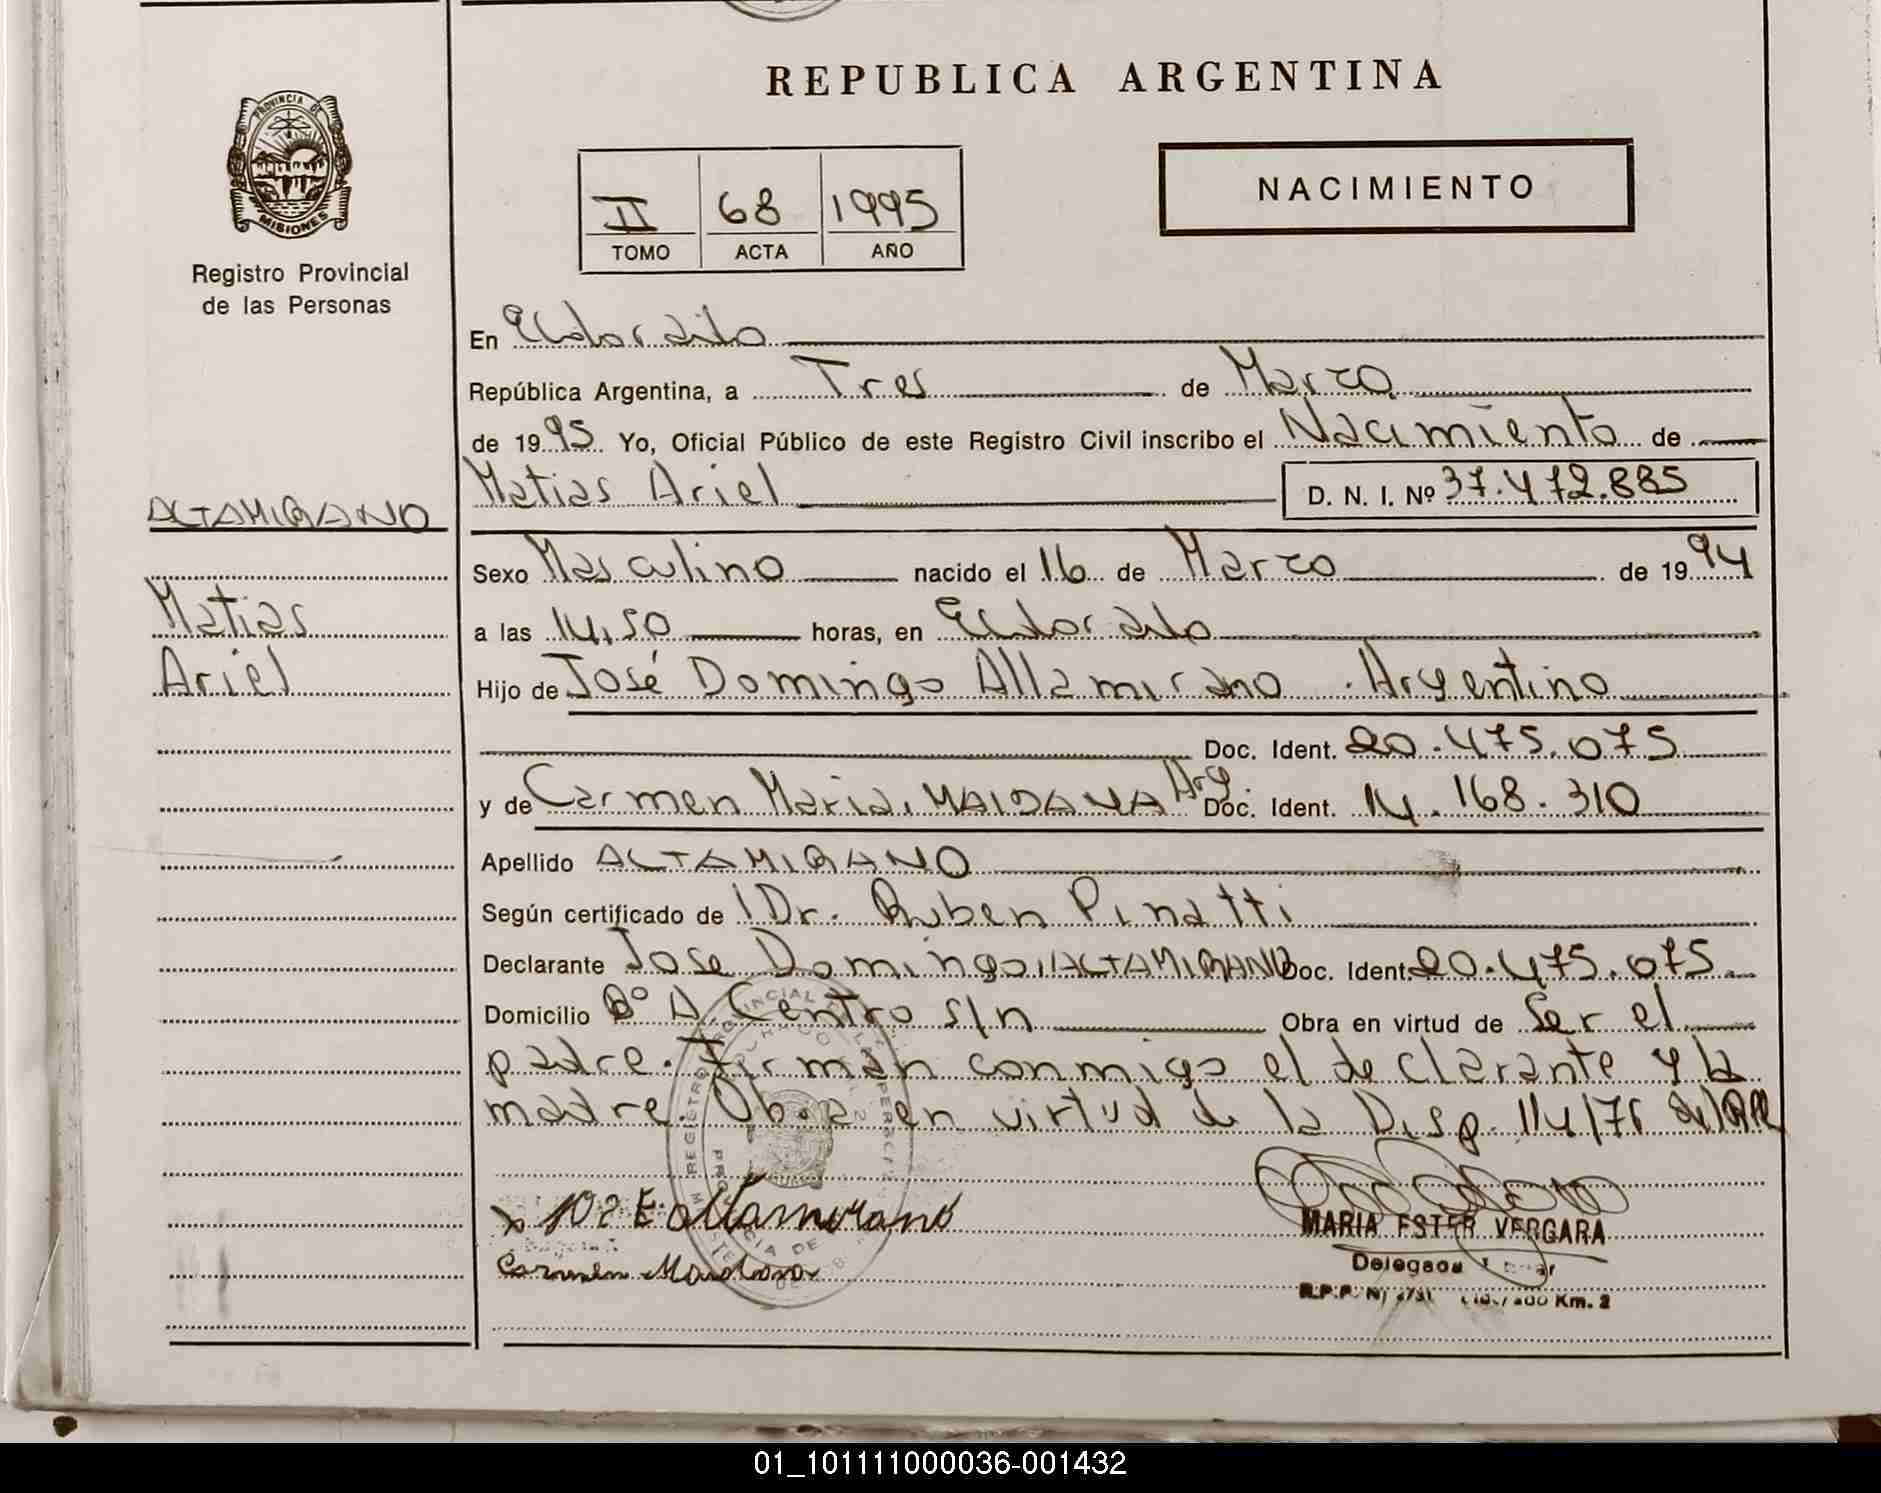 REPUBLICA ARGENTINA
PROVINCIA DE
MISIONES
Registro Provincial
de las Personas
II 68 1995
TOMO ACTA AÑO
NACIMIENTO
En Eldorado
República Argentina, a Tres de Marzo
de 1995 Yo, Oficial Público de este Registro Civil inscribo el Nacimiento de
Matias Ariel D. N. I. Nº 37.472.885
ALTAMIRANO
Matias
Ariel
Sexo Masculino nacido el 16 de Marzo de 1994
a las 14,50 horas, en Eldorado
Hijo de José Domingo Altamirano . Argentino
Doc. Ident. 20.475.075
y de Carmen Maria, MAIDANA Arg. Doc. Ident. 14.168.310
Apellido ALTAMIRANO
Según certificado de Dr. Ruben Pinatti
Declarante Jose Domingo, ALTAMIRANO Doc. Ident. 20.475.075
Domicilio Bº A. Centro s/n Obra en virtud de Ser el
padre. Firman conmigo el declarante y la
madre. Obra en virtud de la Disp. 114/76
Altamirano
Carmen Maidana
MARIA ESTER VERGARA
Km. 2
01_101111000036-001432